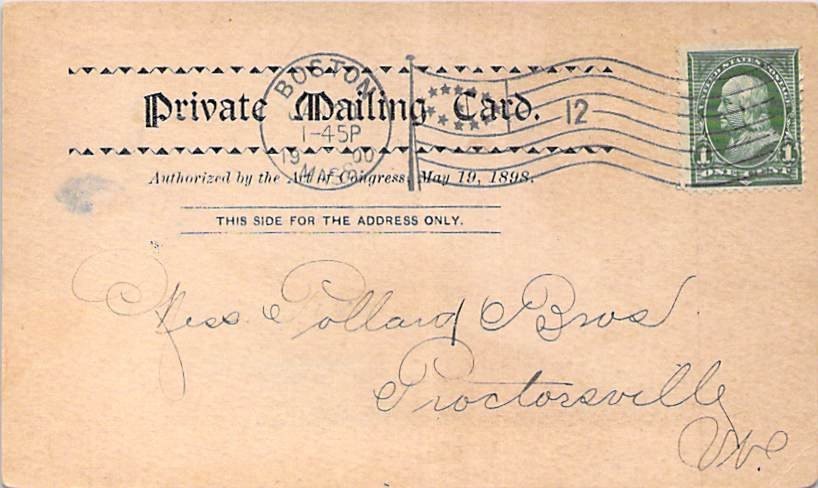 Private Mailing Card.
Authorized by the Act of Congress, May 19, 1898.
THIS SIDE FOR THE ADDRESS ONLY.
BOSTON
1-45P
19 00
MASS
12
UNITED STATES POSTAGE
1 1
ONE CENT
Mess Pollard Bros
Proctorsville
Vt.